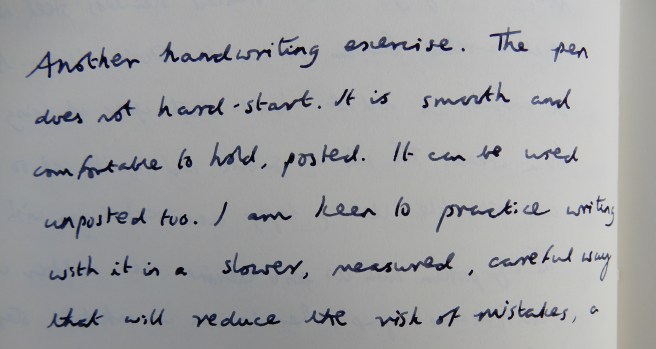 Another handwriting exercise. The pen
does not hard-start. It is smooth and
comfortable to hold, posted. It can be used
unposted too. I am keen to practice writing
with it in a slower, measured, careful way
that will reduce the risk of mistakes, a